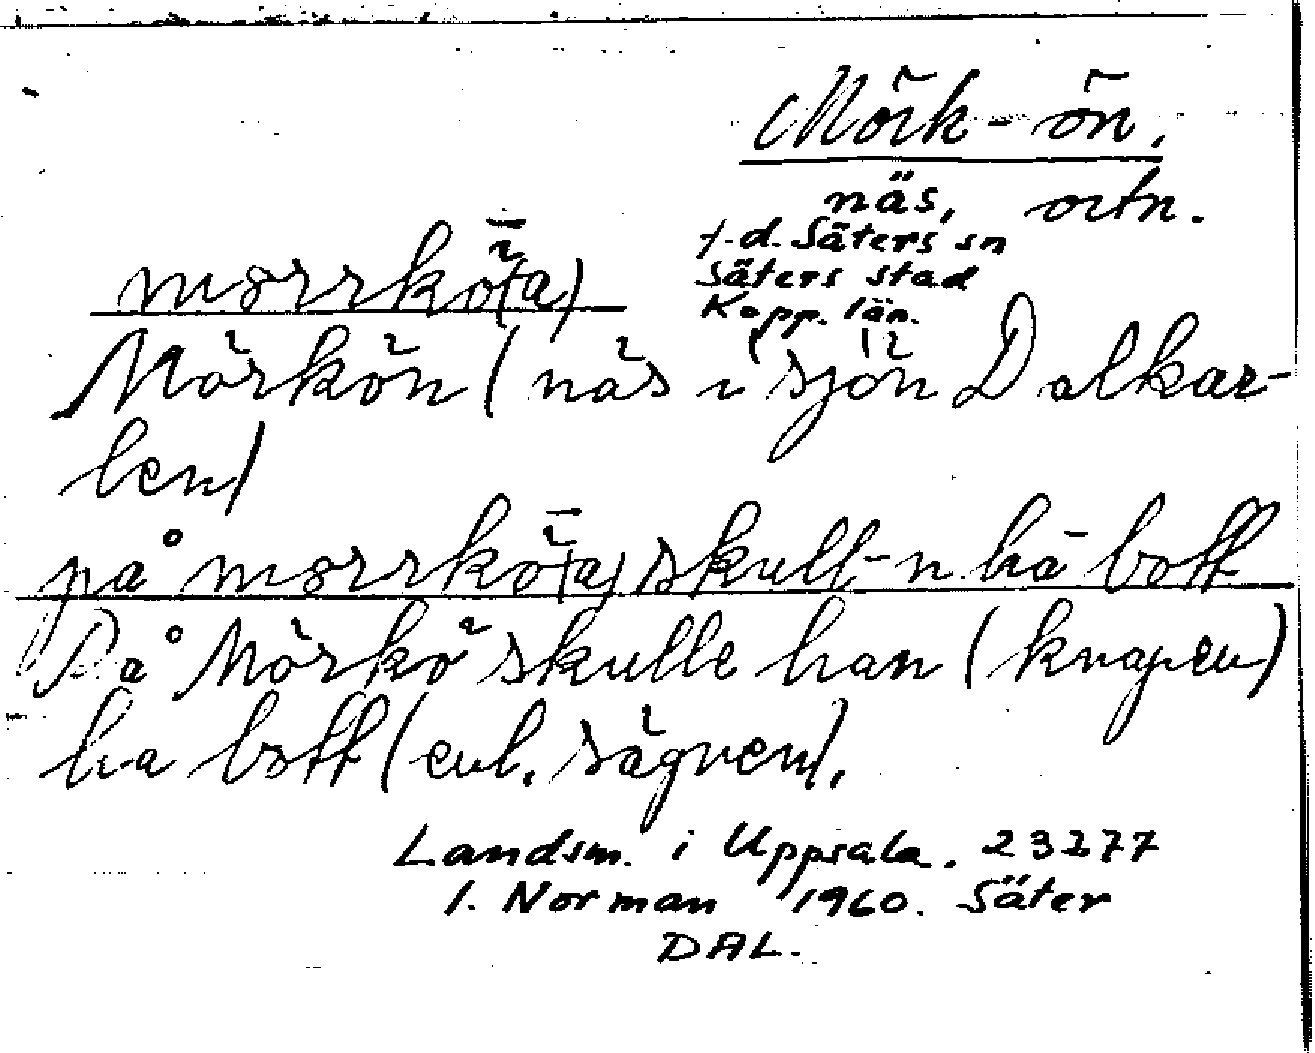 Mörk-ön.
näs, ortn.
f.d. Säters sn
Säters stad
Kopp. län.
mörrkȫ(a)
Mörkön (näs i sjön Dalkar-
len)
på mörrkȫ(a) skull-n hā bott
På Mörkö skulle han (knapen)
ha bott (enl. sägnen).
Landsm. i Uppsala. 23277
I. Norman 1960. Säter
DAL.